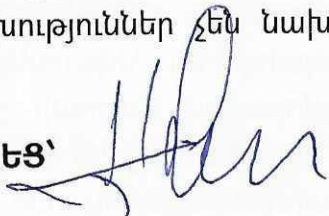 խություններ չեն նախ
ԵՑ՝